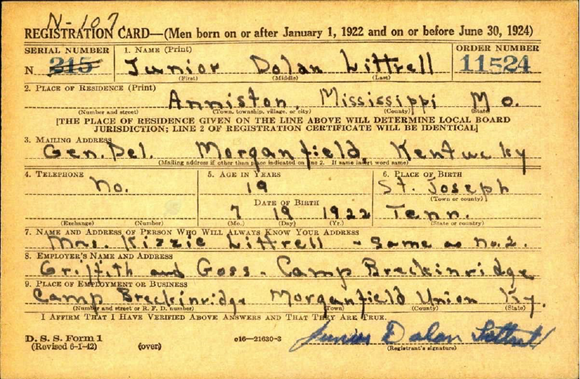 N-107
REGISTRATION CARD—(Men born on or after January 1, 1922 and on or before June 30, 1924)
SERIAL NUMBER 1. NAME (Print) ORDER NUMBER
N 215 Junior Dolan Littrell 11524
(First) (Middle) (Last)
2. PLACE OF RESIDENCE (Print)
Anniston, Mississippi Mo.
(Number and street) (Town, township, village, or city) (County) (State)
[THE PLACE OF RESIDENCE GIVEN ON THE LINE ABOVE WILL DETERMINE LOCAL BOARD
JURISDICTION; LINE 2 OF REGISTRATION CERTIFICATE WILL BE IDENTICAL]
3. MAILING ADDRESS
Gen. Del. Morganfield, Kentucky
(Mailing address if other than place indicated on line 2. If same insert word same)
4. TELEPHONE 5. AGE IN YEARS 6. PLACE OF BIRTH
No. 19 St. Joseph
(Town or county)
DATE OF BIRTH
7 19 1922 Tenn.
(Exchange) (Number) (Mo.) (Day) (Yr.) (State or country)
7. NAME AND ADDRESS OF PERSON WHO WILL ALWAYS KNOW YOUR ADDRESS
Mrs. Kizzie Littrell - Same as no. 2.
8. EMPLOYER'S NAME AND ADDRESS
Griffith and Goss - Camp Breckinridge
9. PLACE OF EMPLOYMENT OR BUSINESS
Camp Breckinridge Morganfield Union Ky.
(Number and street or R. F. D. number) (Town) (County) (State)
I AFFIRM THAT I HAVE VERIFIED ABOVE ANSWERS AND THAT THEY ARE TRUE.
D. S. S. Form 1
(Revised 6-1-42) (over) c16—21630-2 Junior Dolan Littrell
(Registrant's signature)